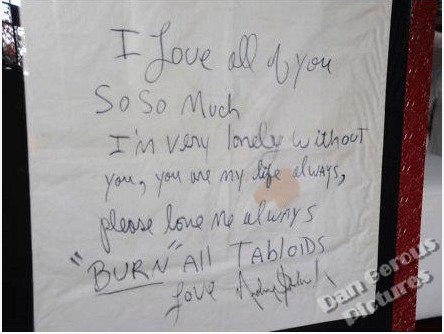 I Love all of you
SO SO Much
I'm very lonely without
you, you are my life always,
please love me always
"BURN" All TABlOIDS
Love
Dangerous
Pictures